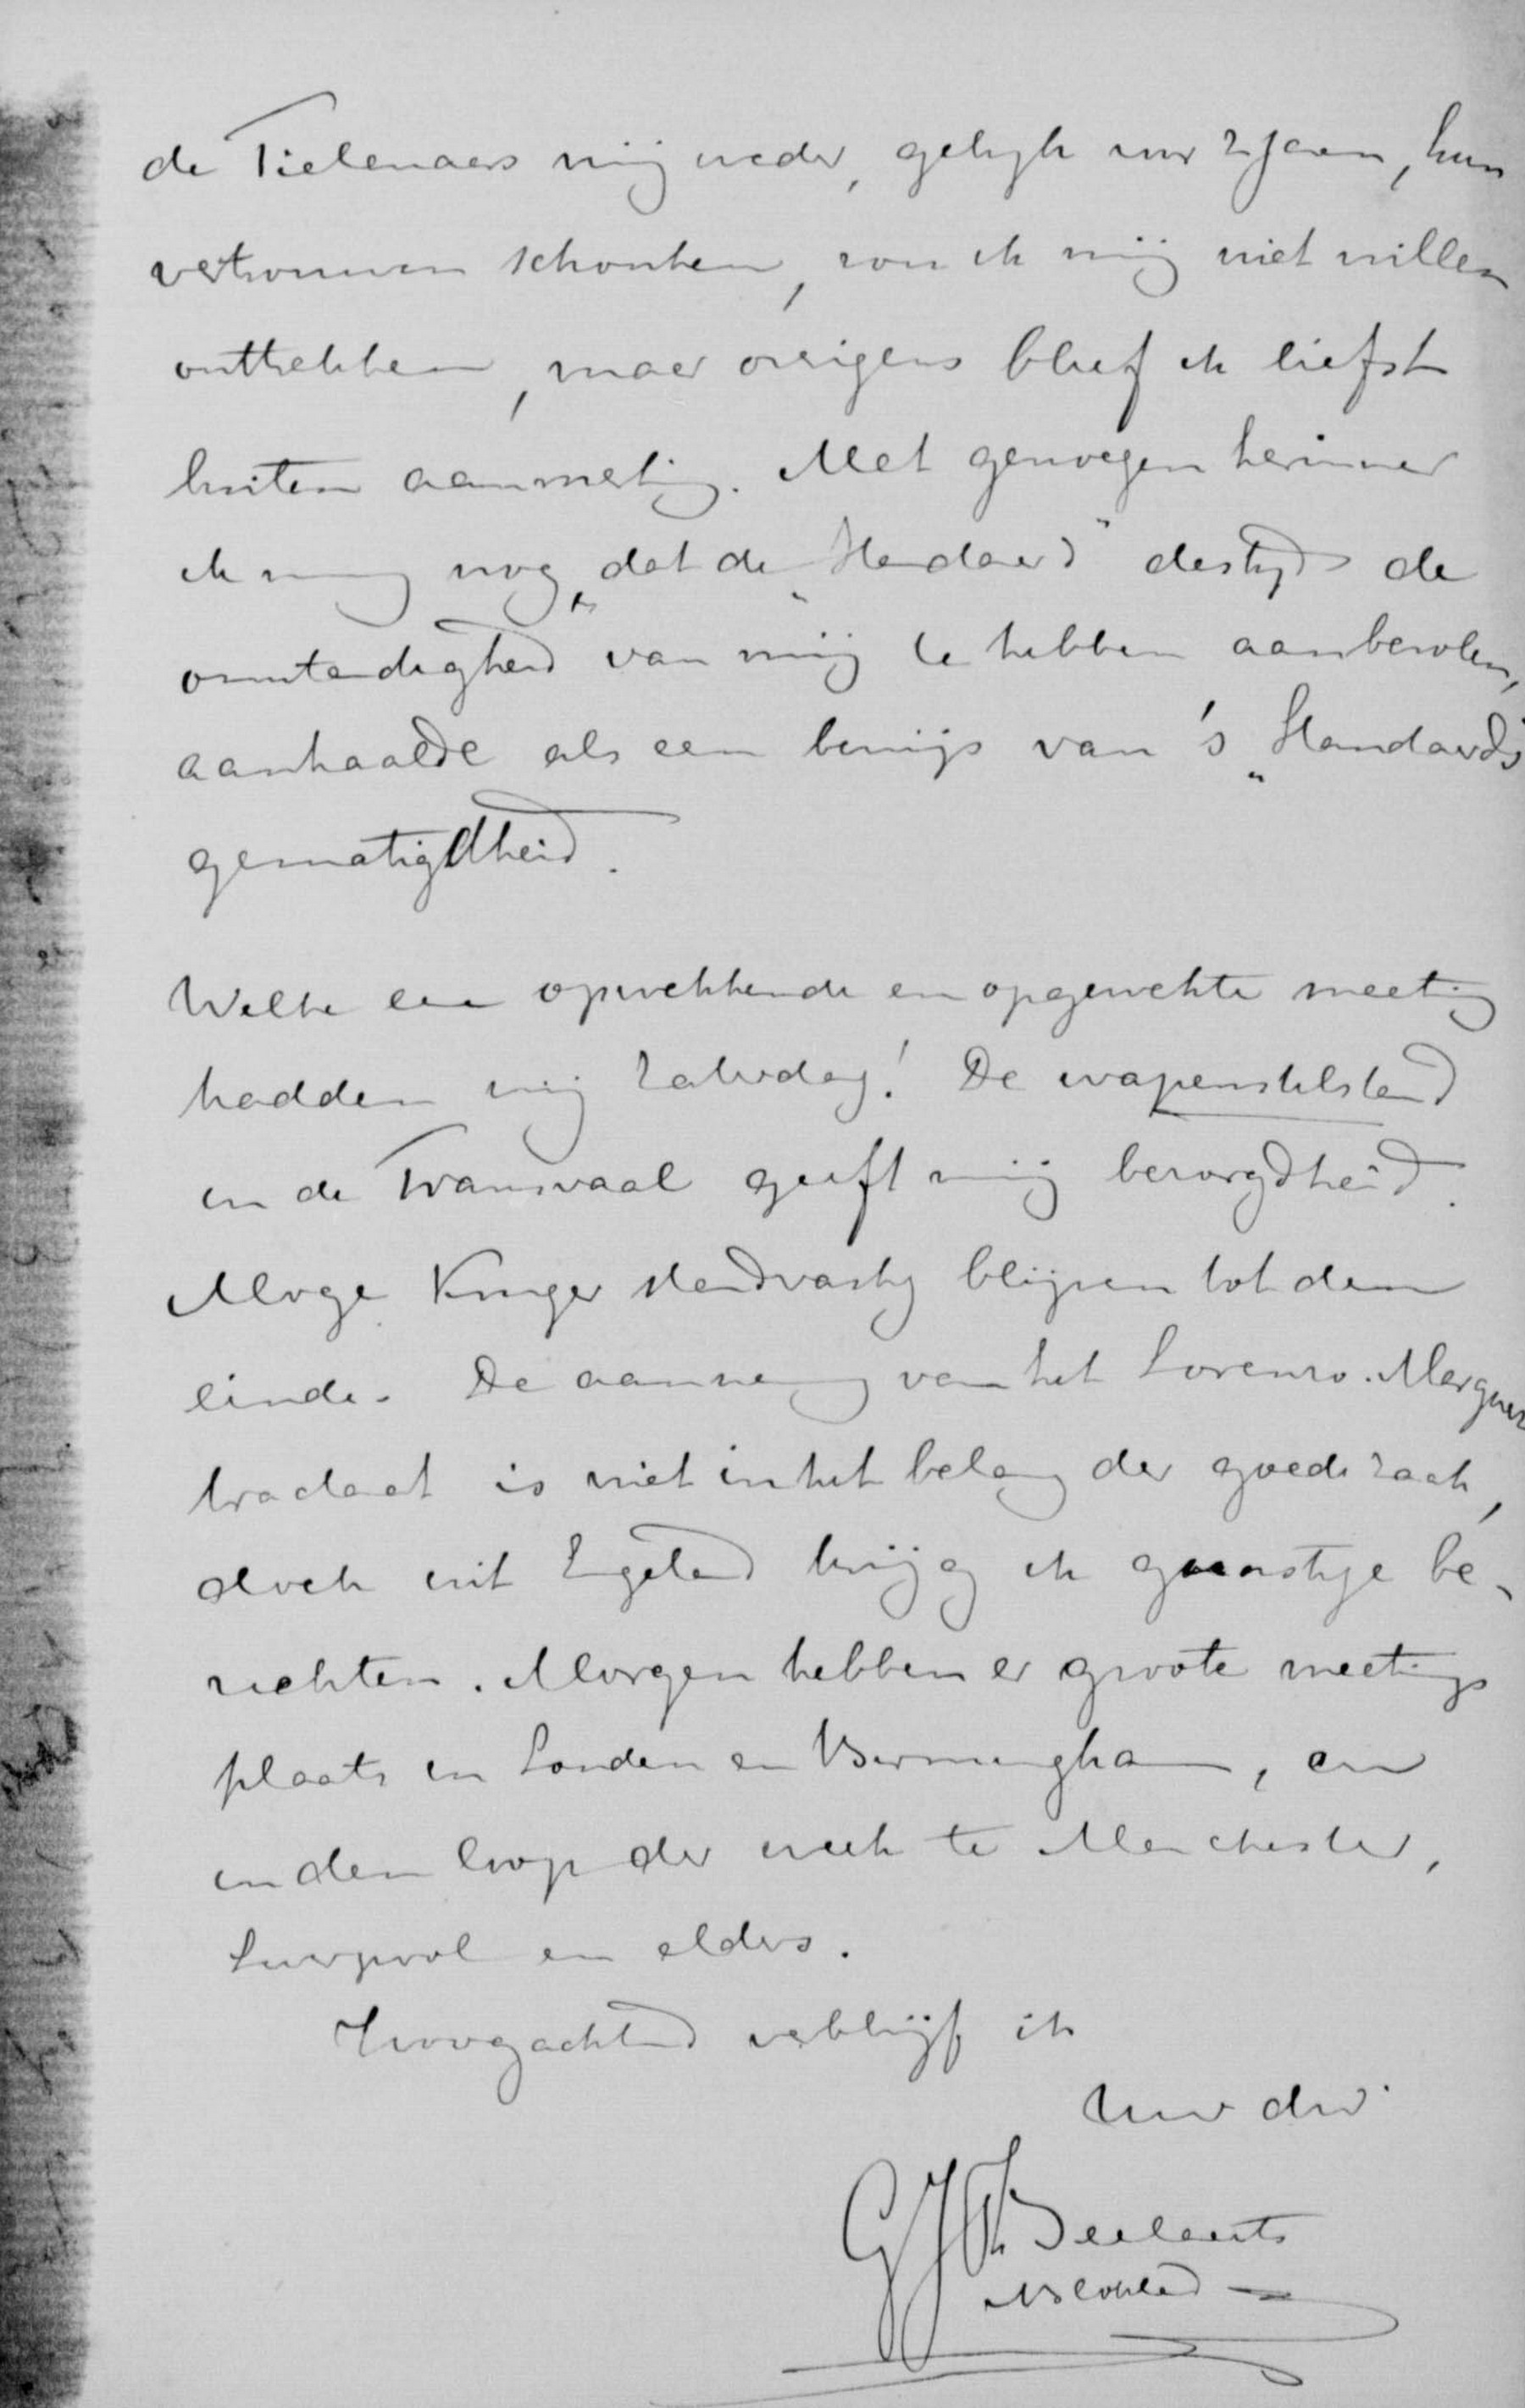 de Tielenaars mij weder, gelijk voor 2 jaren, hun
vertrouwen schonken, zou ik mij niet willen
onttrekken, maar overigens bleef ik liefst
buiten aanmerking. Met genoegen herinner
ik mij nog, dat de "Standaard" destijds de
omstandigheid van mij te hebben aanbevolen,
aanhaalde als een bewijs van 's "Standaard's
gematigdheid.
Welke een opwekkende en opgewekte meeting
hadden wij Zaturdag! De wapenstilstand
in de Transvaal geeft mij bezorgdheid.
Moge Kruger standvastig blijven tot den
einde. De aanneming van het Lorenzo-Marques
tractaat is niet in het belang der goede zaak,
doch uit Engeland krijg ik gunstige be-
richten. Morgen hebben er groote meetings
plaats in Londen en Birmingham, en
in den loop der week te Manchester,
Liverpool en elders.
Hoogachtend verblijf ik
Uw dw.
GJTh Beelaerts
v Blokland